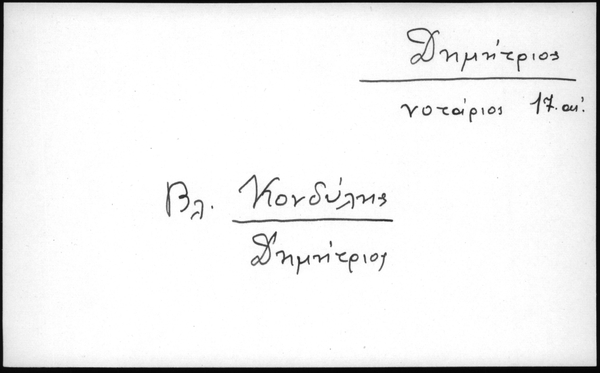 Δημήτριος
νοτάριος 17. αι.
Βλ. Κονδύλης
Δημήτριος